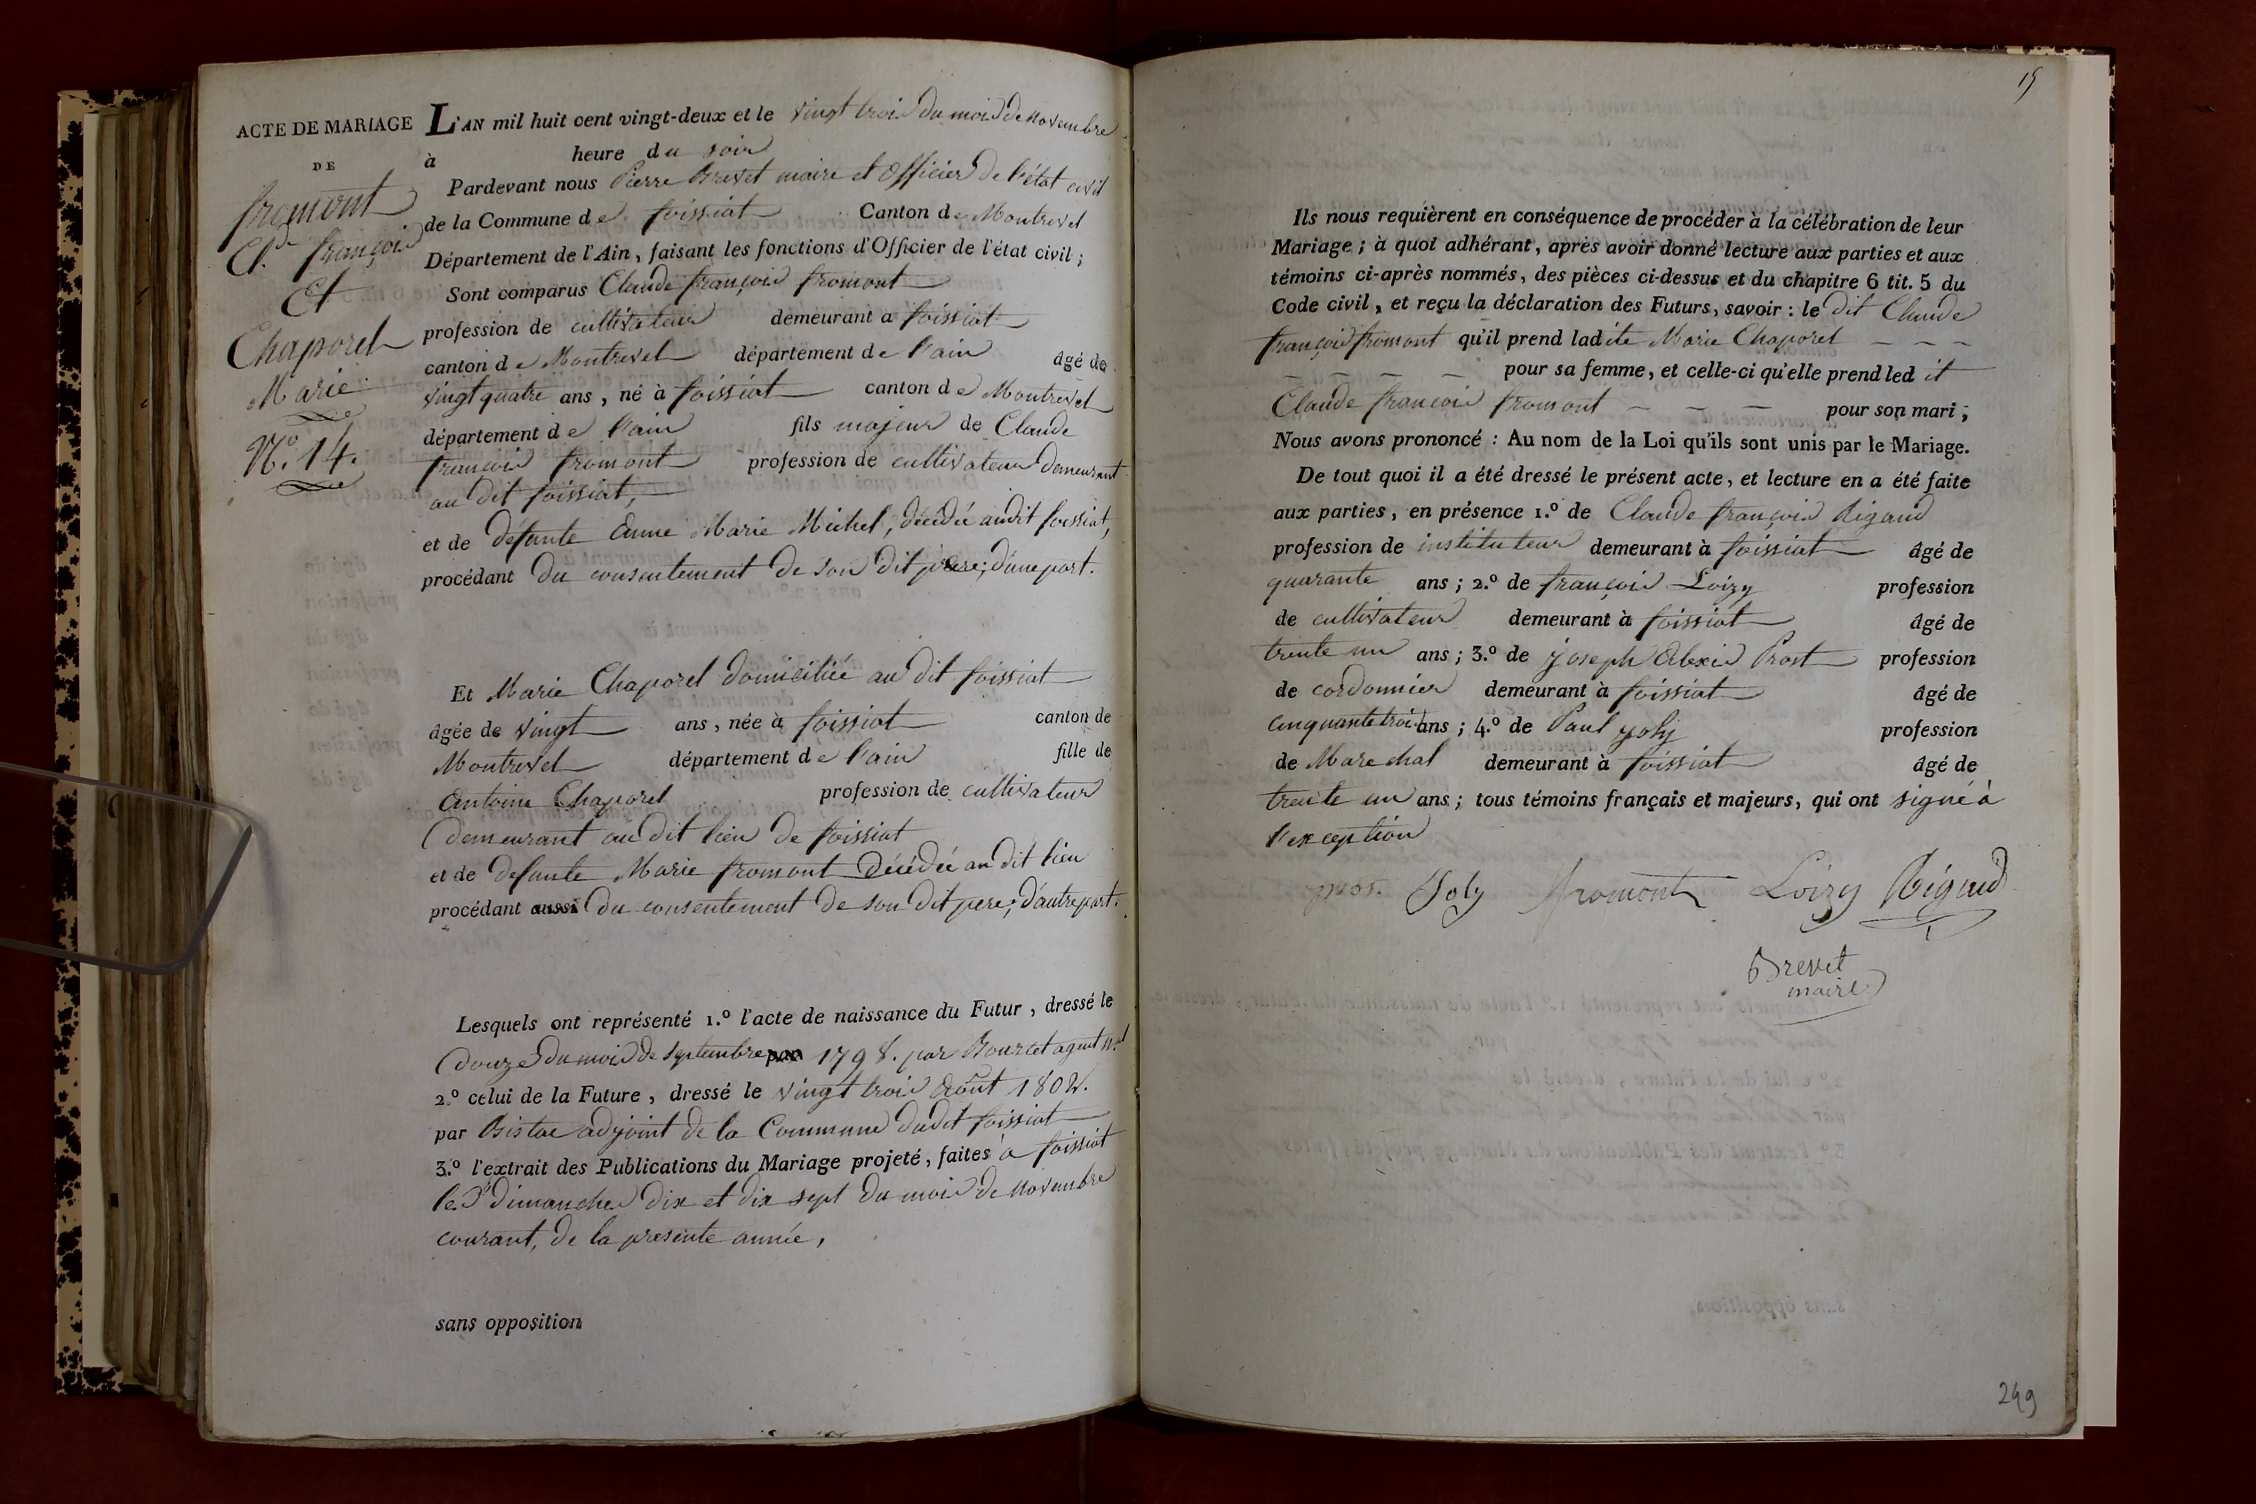 ACTE DE MARIAGE
DE
fromont
Cl. françois
Et
Chaporel
Marie
N.º 14.
L'AN mil huit cent vingt-deux et le vingt trois du mois de novembre
à heure du soir
Pardevant nous Pierre Brevet maire et Officier de l'état civil
de la Commune de foissiat Canton de Montrevel
Département de l'Ain, faisant les fonctions d'Officier de l'état civil;
Sont comparus Claude françois fromont
profession de cultivateur demeurant a foissiat
canton de Montrevel département de l'ain âgé de
vingt quatre ans, né à foissiat canton de Montrevel
département de l'ain fils majeur de Claude
françois fromont profession de cultivateur demeurant
au dit foissiat,
et de défunte Anne Marie Michel, décédée audit foissiat,
procédant du consentement de son dit père; d'une part.
Et Marie Chaporel domiciliée au dit foissiat
âgée de vingt ans, née à foissiat canton de
Montrevel département de l'ain fille de
Antoine Chaporel profession de cultivateur
demeurant au dit lieu de foissiat
et de defunte Marie fromont Décédée au dit lieu
procédant aussi du consentement de son dit pere; d'autre part.
Lesquels ont représenté 1.º l'acte de naissance du Futur, dressé le
douze du mois de septembre par 1798. par Bourcet agent n.al
2.º celui de la Future, dressé le vingt trois Août 1802.
par Bistac adjoint de la Commune dudit foissiat
3.º l'extrait des Publications du Mariage projeté, faites à foissiat
les dimanches dix et dix sept du mois de novembre
courant, de la presente année,
sans opposition
15
Ils nous requièrent en conséquence de procéder à la célébration de leur
Mariage; à quoi adhérant, après avoir donné lecture aux parties et aux
témoins ci-après nommés, des pièces ci-dessus et du chapitre 6 tit. 5 du
Code civil, et reçu la déclaration des Futurs, savoir: le dit Claude
françois fromont qu'il prend ladite Marie Chaporel - - -
- - - - pour sa femme, et celle-ci qu'elle prend ledit
Claude françois fromont - - - pour son mari;
Nous avons prononcé: Au nom de la Loi qu'ils sont unis par le Mariage.
De tout quoi il a été dressé le présent acte, et lecture en a été faite
aux parties, en présence 1.º de Claude françois Rigaud
profession de instituteur demeurant à foissiat âgé de
quarante ans; 2.º de françois Loizy profession
de cultivateur demeurant à foissiat âgé de
trente un ans; 3.º de Joseph Alexis Prost profession
de cordonnier demeurant à foissiat âgé de
cinquante trois ans; 4.º de Paul Joly profession
de Marechal demeurant à foissiat âgé de
trente un ans; tous témoins français et majeurs, qui ont signé à
l'exception
Joly fromont Loizy Rigaud
Brevet
maire
249